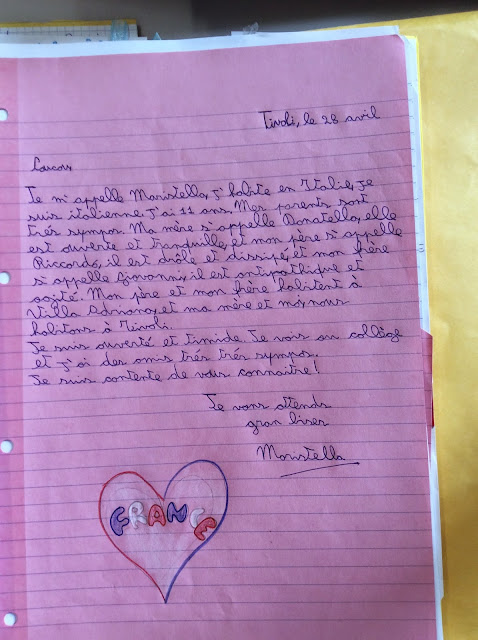 Tivoli, le 28 avril
Coucou,
Je m'appelle Maristella, j'habite en Italie, je
suis italienne. J'ai 11 ans. Mes parents sont
trés sympas. Ma mère s'appelle Donatella, elle
est ouverte et tranquille, et mon père s'appelle
Riccardo, il est drôle et dissipé, et mon frère
s'appelle Giovanni, il est antipathique et
agité. Mon père et mon frère habitent à
Villa Adriana, et ma mère et moi, nous
habitons à Tivoli.
Je suis ouverte et timide. Je vais au collège
et j'ai des amis trés trés sympas.
Je suis contente de vous connaitre!
Je vous attends
gran bises
Maristella
FRANCE